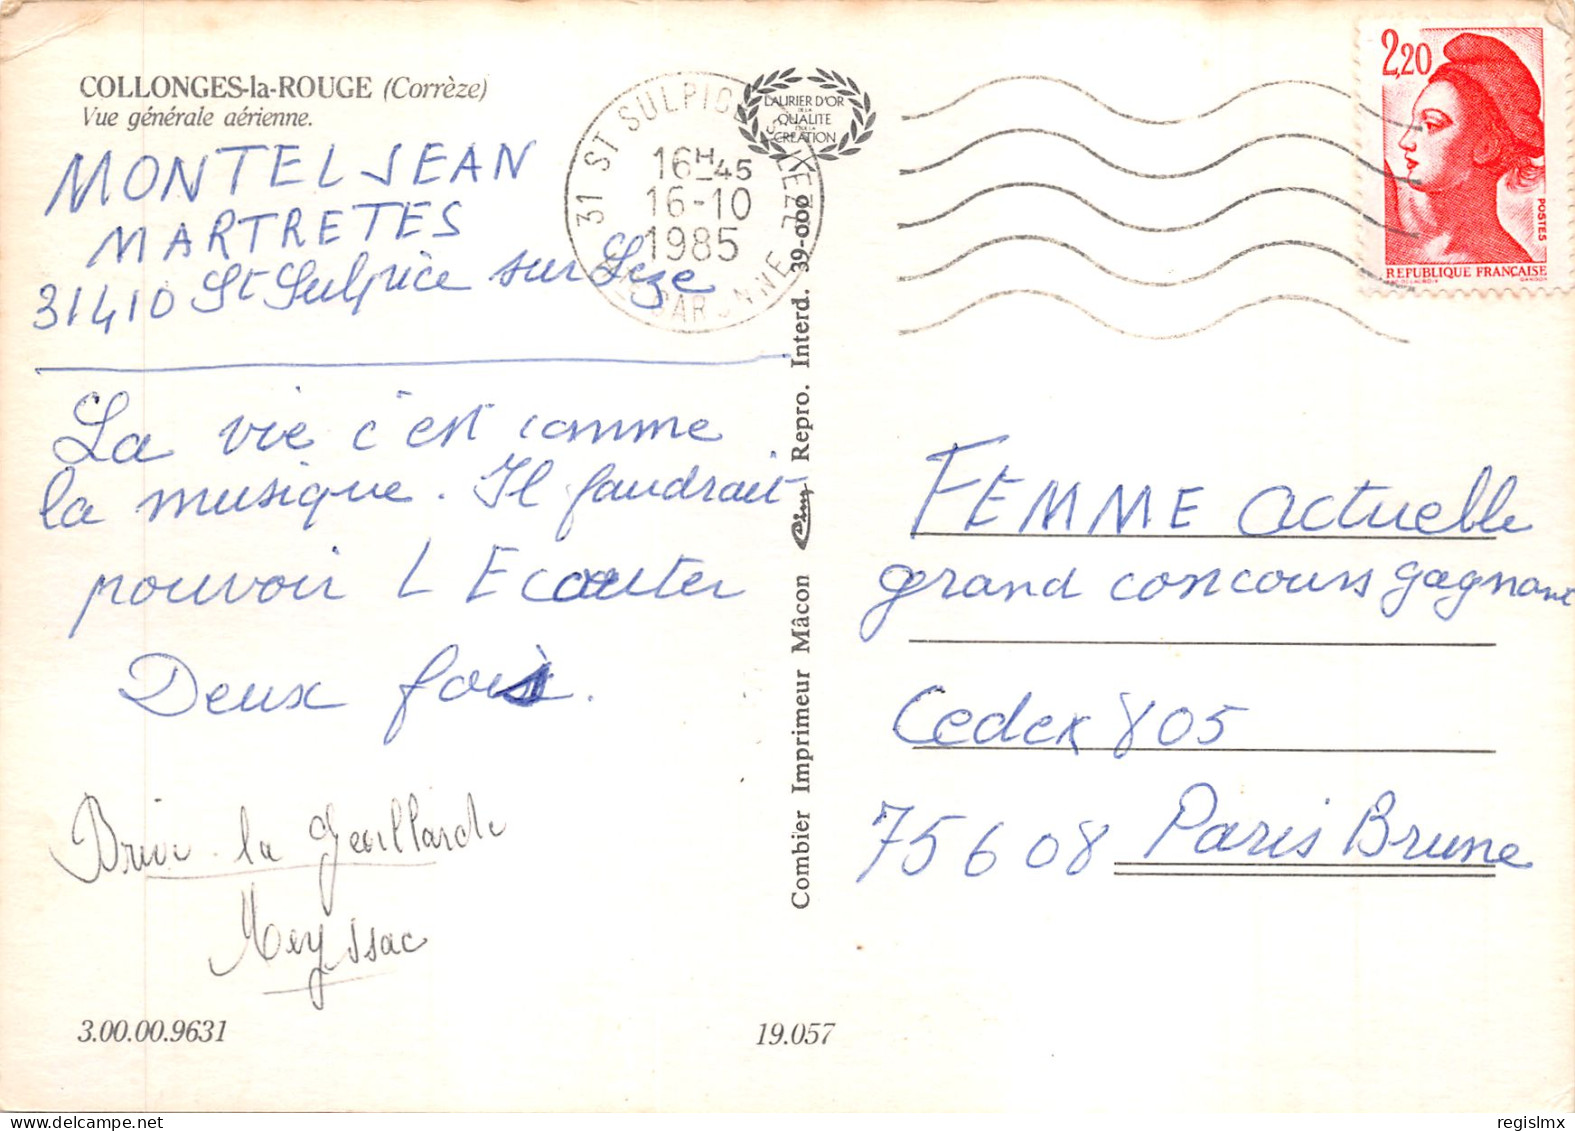 COLLONGES-la-ROUGE (Corrèze)
Vue générale aérienne.
MONTEL JEAN
MARTRETES
31410 St Sulpice sur Leze
31 ST SULPICE S/LEZE
16H45
16-10
1985
GARONNE
LAURIER D'OR
DE LA
QUALITE
CREATION
2,20
POSTES
REPUBLIQUE FRANÇAISE
GANDON
La vie c'est comme
la musique. Il faudrait
pouvoir L Ecouter
Deux fois.
Brive la Gaillarde
Meyssac
3.00.00.9631
19.057
Combier Imprimeur Mâcon Cim Repro. Interd. 39-000
FEMME Actuelle
grand concours gagnant
Cedex 805
75608 Paris Brune
regislmx